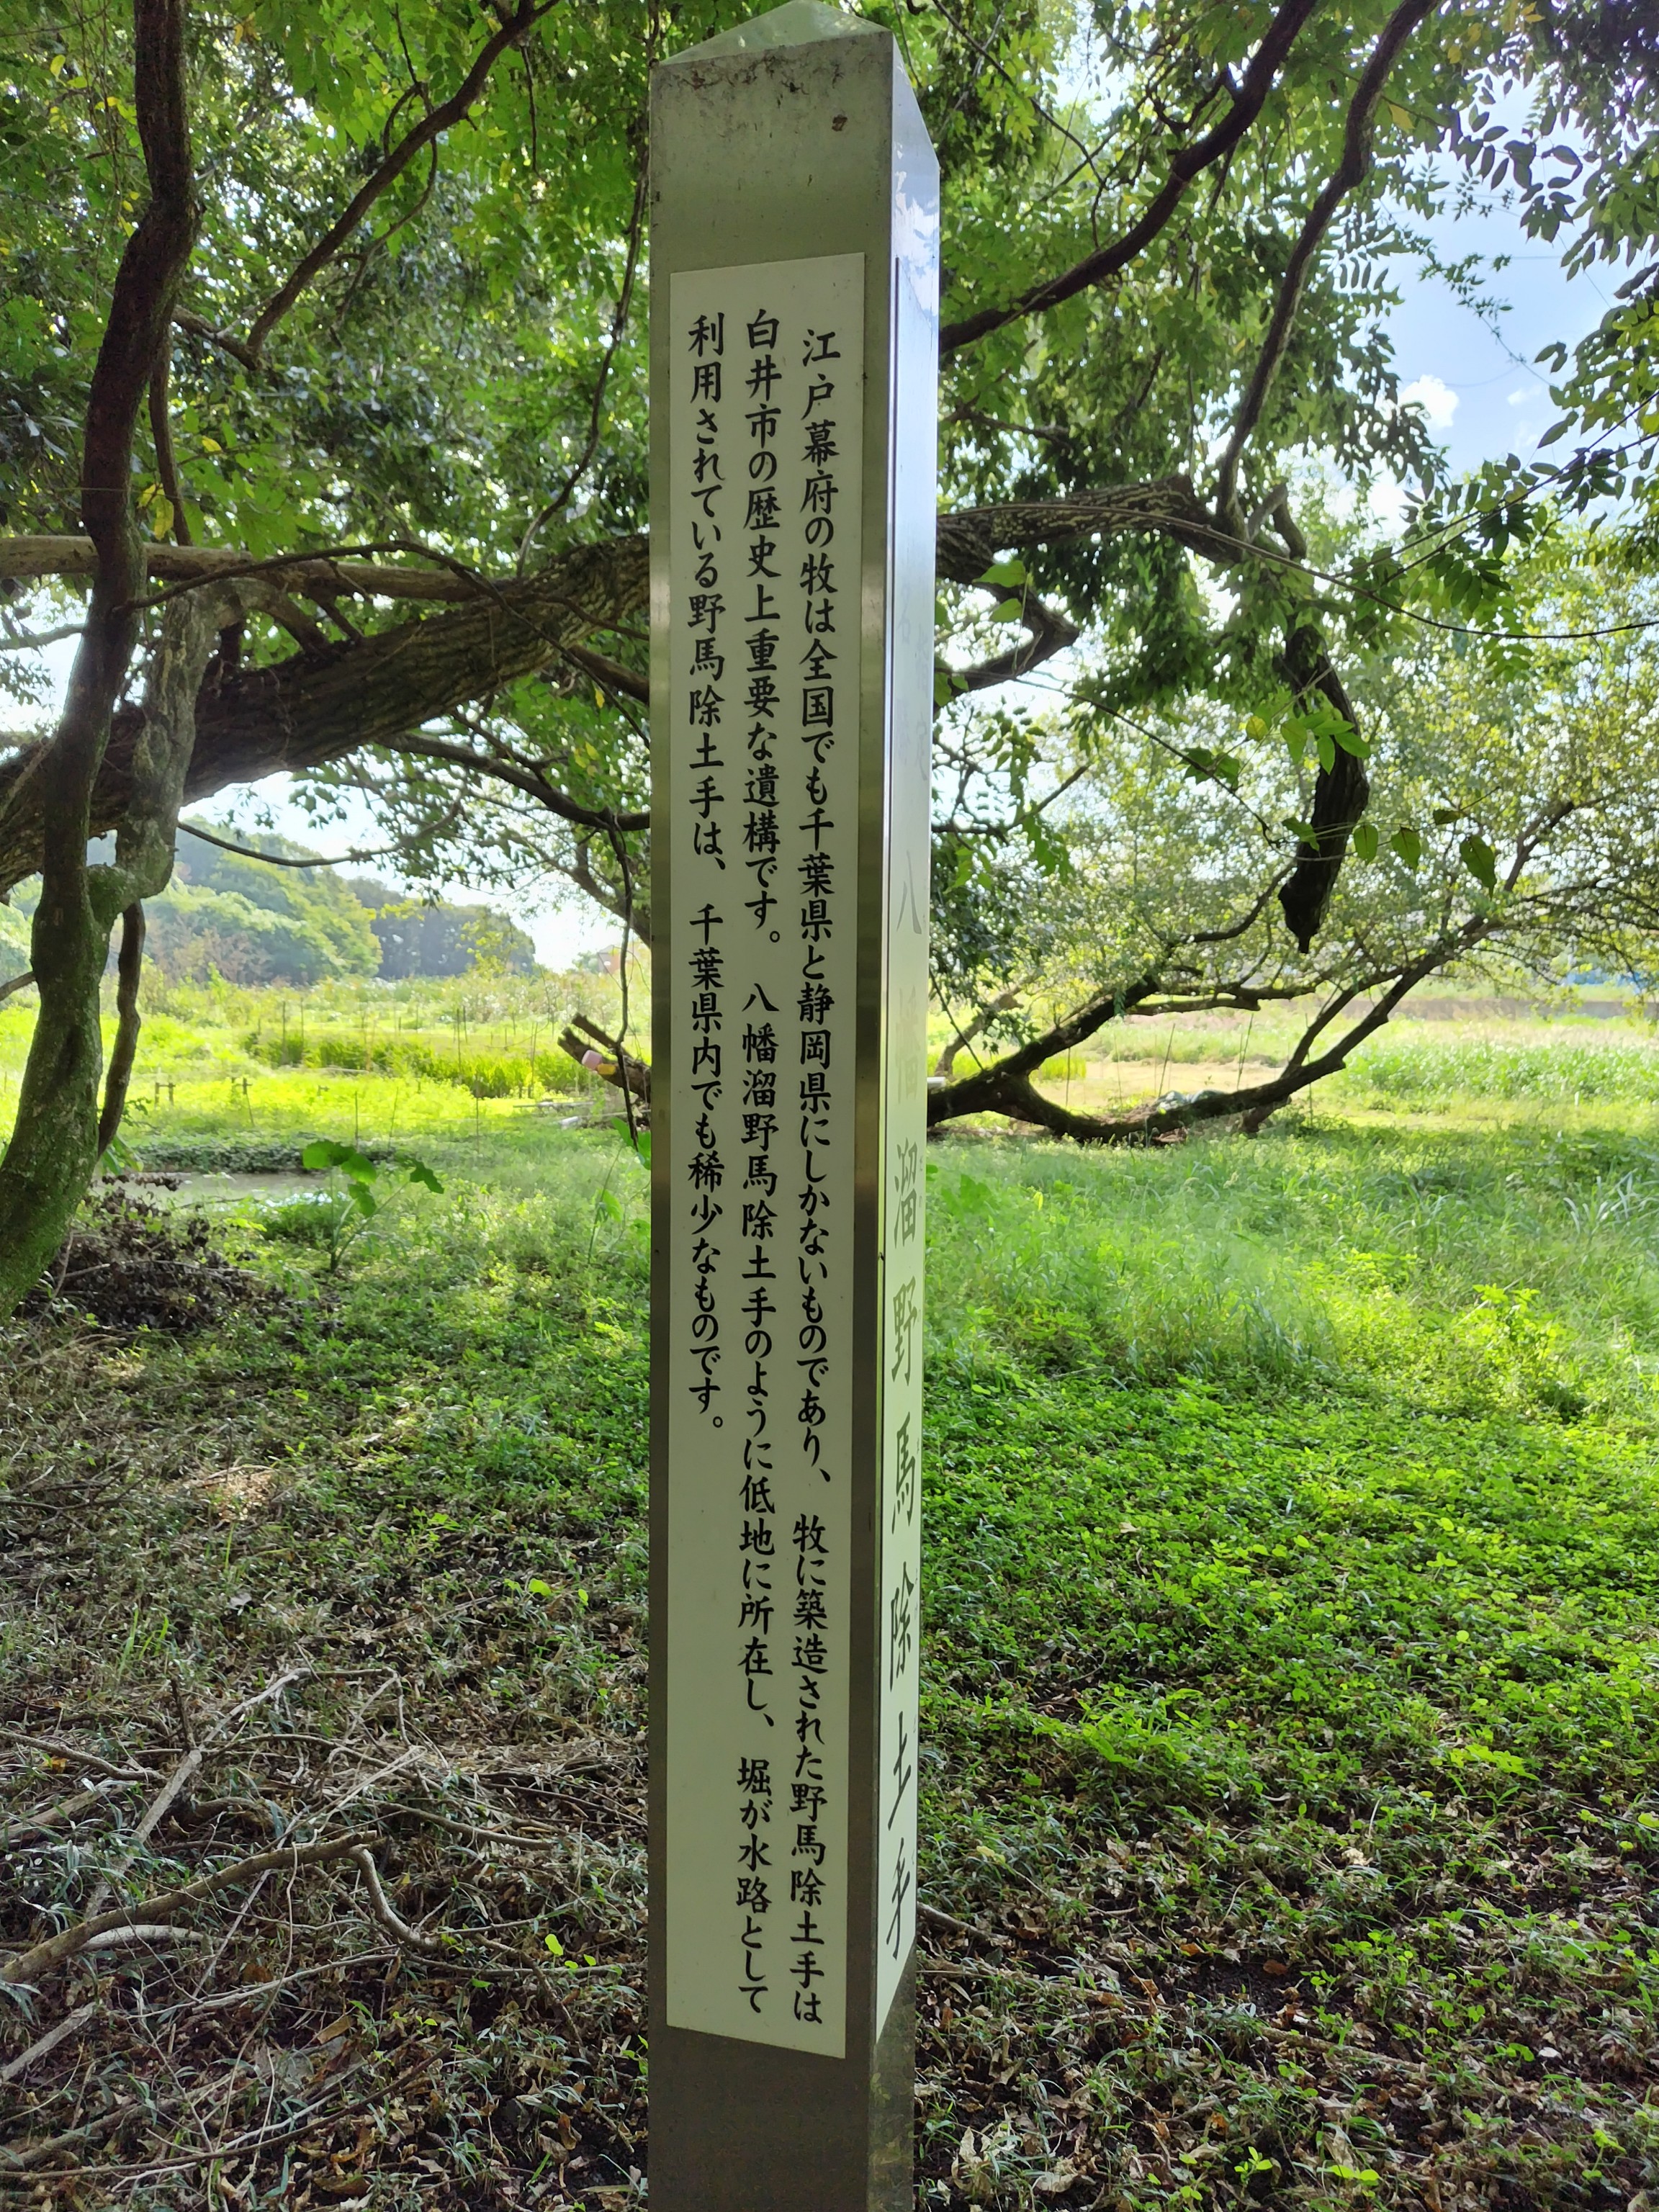 江戸幕府の牧は全国でも千葉県と静岡県にしかないものであり、牧に築造された野馬除土手は
白井市の歴史上重要な遺構です。八幡溜野馬除土手のように低地に所在し、堀が水路として
利用されている野馬除土手は、千葉県内でも稀少なものです。
八幡溜野馬除土手